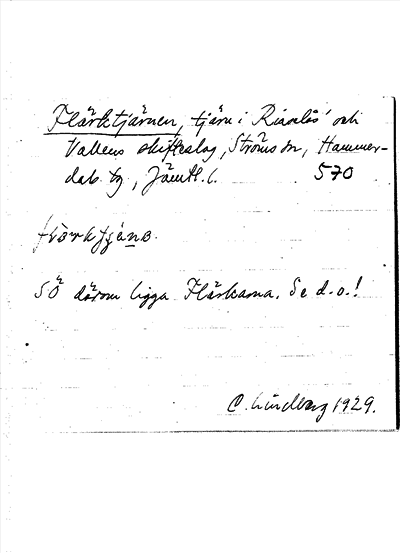 Flärktjärnen, tjärn i Risselås' och
Vallens skifteslag, Ströms sn, Hammer-
dals tg, Jämtl. l. 570
flärktjäno.
SÖ därom ligga Flärkarna. Se d.o.!
C. Lindberg 1929.